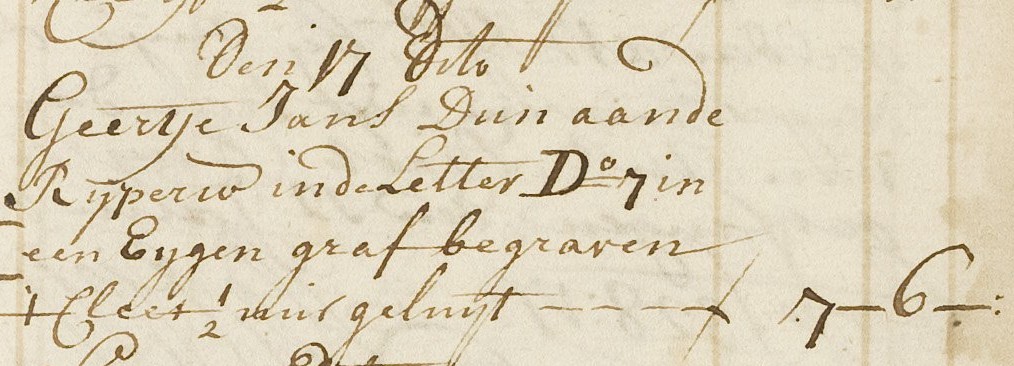 Den 17 Dito
Geertje Jans Duin aande
Ryperw inde Letter D.º 7 in
een Eygen graf begraven
't Cleet ½ uir geluyt - - - - 7-6-: